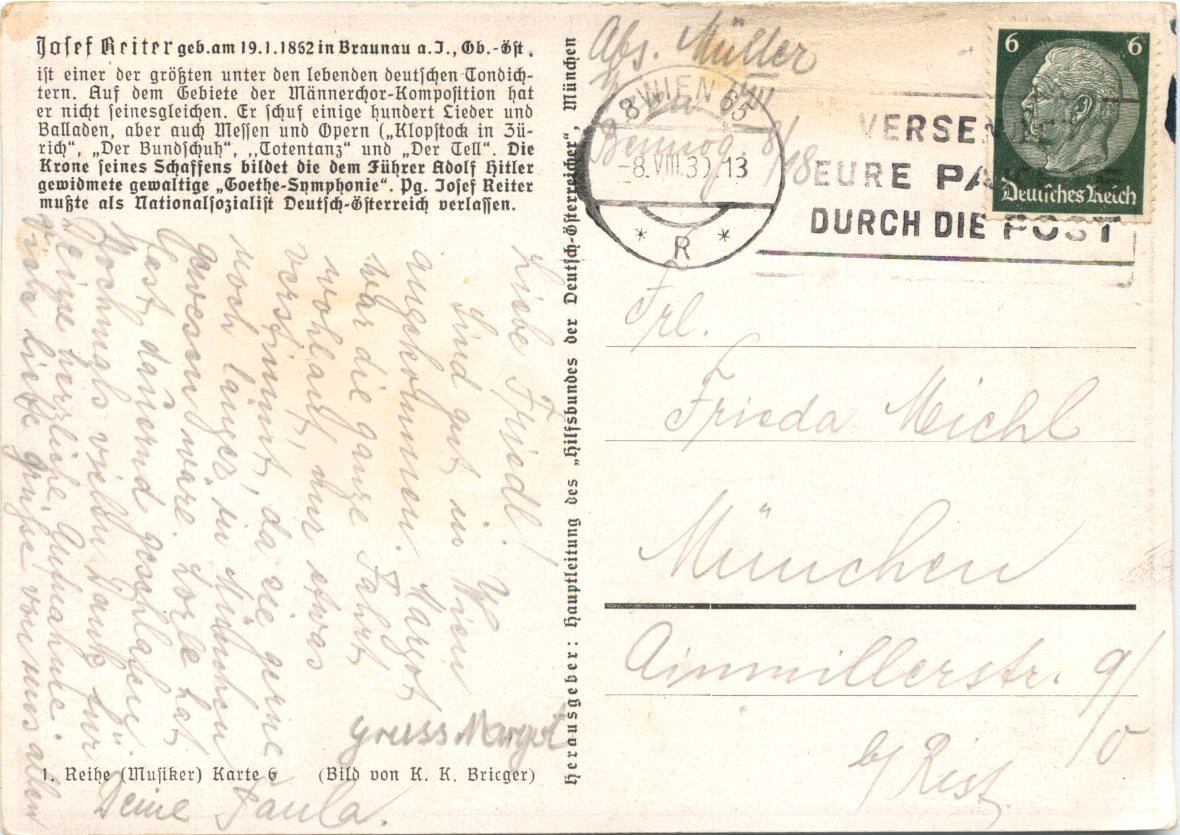 Josef Reiter geb. am 19.1.1862 in Braunau a. I., Ob.-Öst.
ist einer der größten unter den lebenden deutschen Tondich-
tern. Auf dem Gebiete der Männerchor-Komposition hat
er nicht seinesgleichen. Er schuf einige hundert Lieder und
Balladen, aber auch Messen und Opern („Klopstock in Zü-
rich“, „Der Bundschuh“, „Totentanz“ und „Der Tell“. Die
Krone seines Schaffens bildet die dem Führer Adolf Hitler
gewidmete gewaltige „Goethe-Symphonie“. Pg. Josef Reiter
mußte als Nationalsozialist Deutsch-Österreich verlassen.
Liebe Friedl!
Sind gut in Wien
angekommen. Margot
war die ganze Fahrt
wohlauf, nur etwas
verstimmt, da sie gerne
noch länger in München
gewesen wäre. Lorle hat
fast dauernd geschlafen.
Nochmals vielen Dank für
Deine herzliche Aufnahme.
Viele liebe Grüße von uns allen
Deine Paula.
Gruss Margot
1. Reihe (Musiker) Karte 6 (Bild von K. K. Brieger)
Herausgeber: Hauptleitung des „Hilfsbundes der Deutsch-Österreicher“, München
Abs. Müller
Wien VII
8 WIEN 65
-8.VIII.39.13
* R *
VERSENDET
EURE PAKETE
DURCH DIE POST
6 6
Deutsches Reich
Frl.
Frieda Meichl
München
Ainmillerstr. 9/0
b/ Rist.